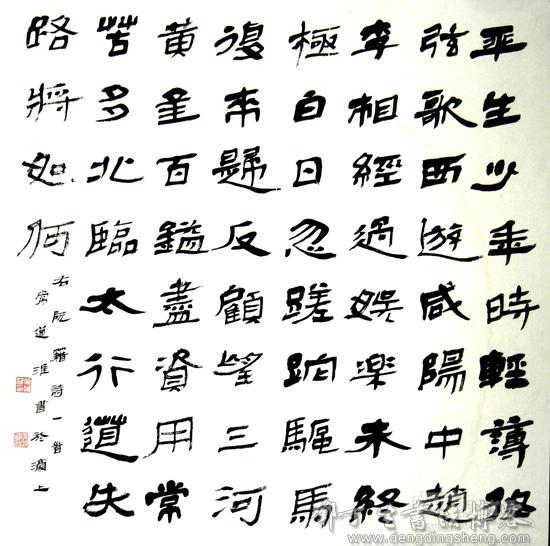 平生少年時輕薄好
弦歌西遊咸陽中趙
李相經過娛樂未終
極白日忽蹉跎驅馬
復來歸反顧望三河
黃金百鎰盡資用常
苦多北臨太行道失
路將如何
右阮籍詩一首
常道淮書於上
www.dengdingsheng.com